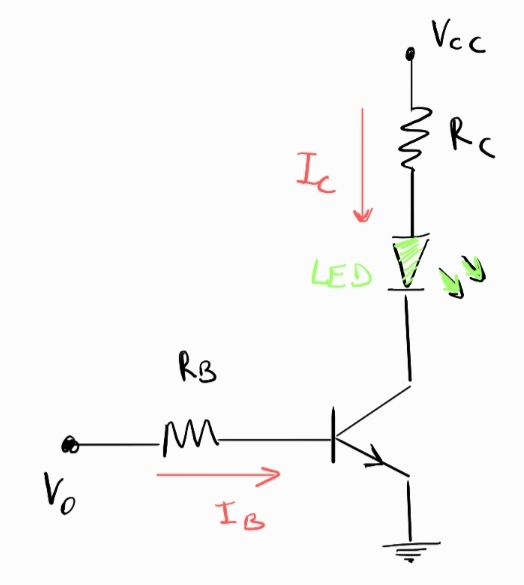 VCC
RC
IC
LED
RB
VO
IB